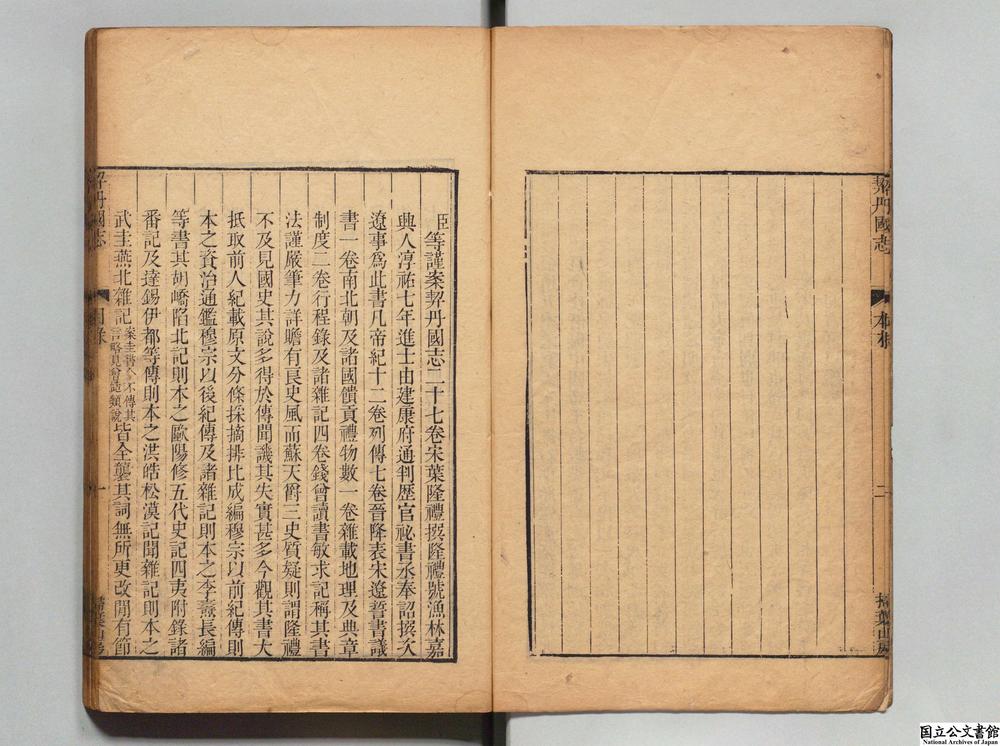 契丹國志
掃葉山房
臣等謹案契丹國志二十七卷宋葉隆禮撰隆禮號漁林嘉
興人淳祐七年進士由建康府通判歷官祕書丞奉詔撰次
遼事爲此書凡帝紀十二卷列傳七卷晉降表宋遼誓書議
書一卷南北朝及諸國饋貢禮物數一卷雜載地理及典章
制度二卷行程錄及諸雜記四卷錢曾讀書敏求記稱其書
法謹嚴筆力詳贍有良史風而蘇天爵三史質疑則謂隆禮
不及見國史其說多得於傳聞譏其失實甚多今觀其書大
抵取前人紀載原文分條採摘排比成編穆宗以前紀傳則
本之資治通鑑穆宗以後紀傳及諸雜記則本之李燾長編
等書其胡嶠陷北記則本之歐陽修五代史記四夷附錄諸
番記及達錫伊都等傳則本之洪皓松漠記聞雜記則本之
武圭燕北雜記案圭書今不傳其言略見曾慥類說皆全襲其詞無所更改間有節
契丹國志
目錄
一
掃葉山房
国立公文書館
National Archives of Japan